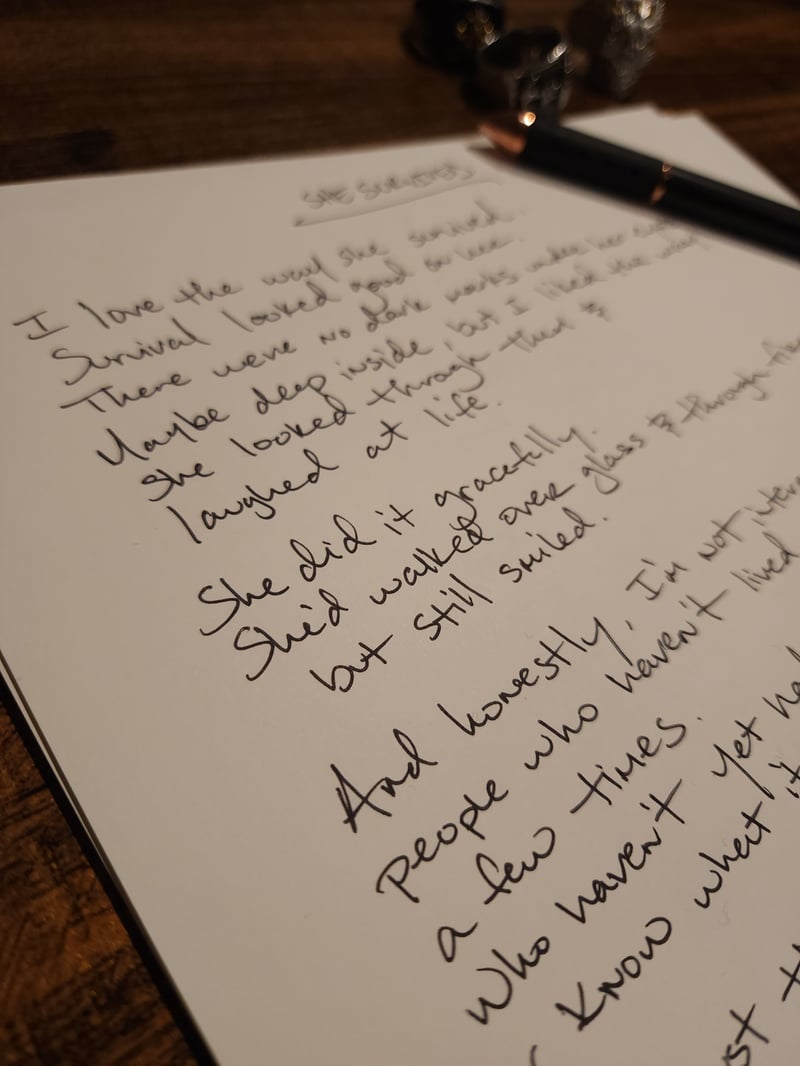 SHE SURVIVED
I love the way she survived.
Survival looked good on her.
There were no dark marks under her
Maybe deep inside, but I liked the way
she looked through them &
laughed at life.
She did it gracefully.
She'd walked over glass & through
but still smiled.
And honestly, I'm not
people who haven't lived
a few times.
Who haven't yet
know what